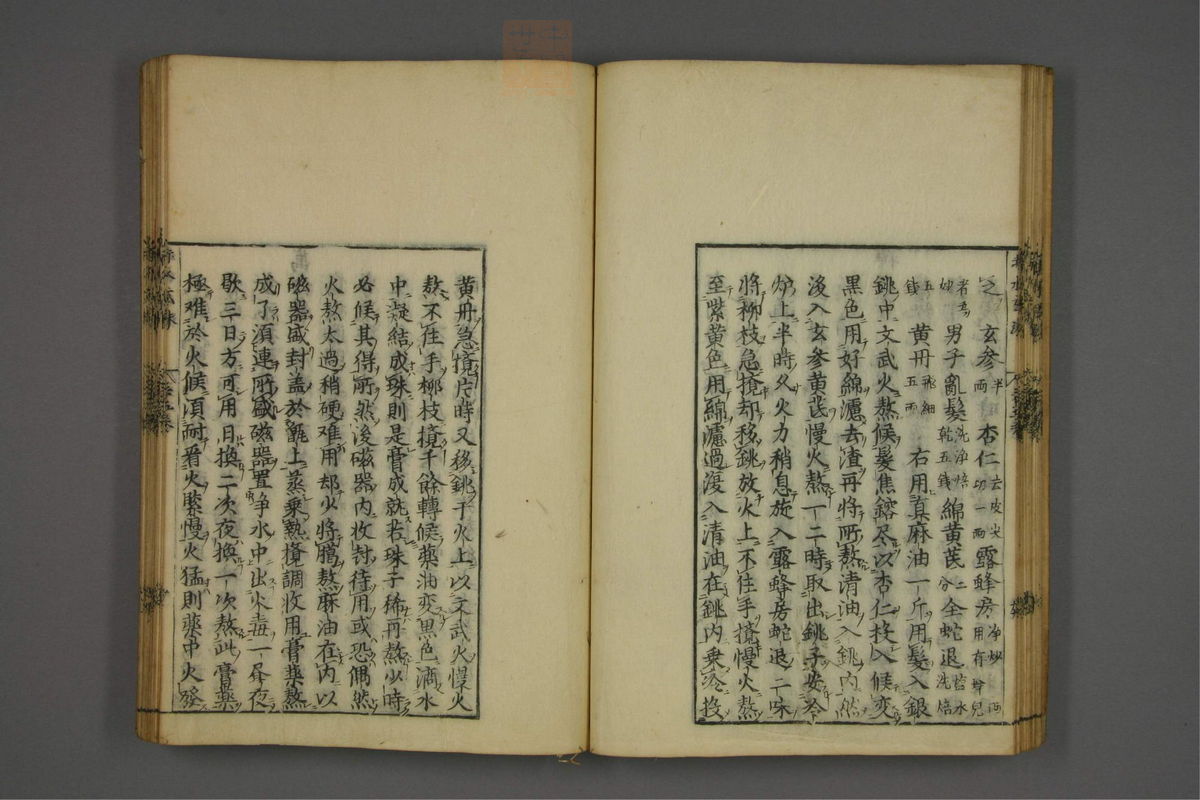 之　玄參半兩　杏仁去皮尖切一兩　露蜂房净炒一兩用有蜂兒
者爲妙　男子亂髮洗净焙乾五錢　綿黃芪二分　全蛇退監水洗焙
五錢　黃丹飛細五兩　右用真麻油一斤用髮入銀
銚中文武火熬候髮焦鎔尽以杏仁投入候变
黑色用好綿濾去渣再將所熬清油入銚内然
後入玄參黃芪慢火熬一二時取出銚子安冷
炉上半時久火力稍息旋入露蜂房蛇退二味
將柳枝急攪却移銚放火上不住手攪慢火熬
至紫黃色用綿濾過復入清油在銚内乗冷投
黃丹急攪片時又移銚于火上以文武火慢火
熬不住手柳枝攪千餘轉候藥油变黑色滴水
中凝結成珠則是膏成就若珠子稀再熬少時
必候其得所然後磁器内收封待用或恐偶然
火熬太過稍硬难用却少將臈熬麻油在内以
磁器盛封盖於甑上蒸乗熱攪調收用膏藥熬
成了須連所盛磁器置净水中出火毒一昼夜
歇三日方可用日換二次夜換一次熬此膏藥
極难於火候須耐看火緊慢火猛則藥中火發